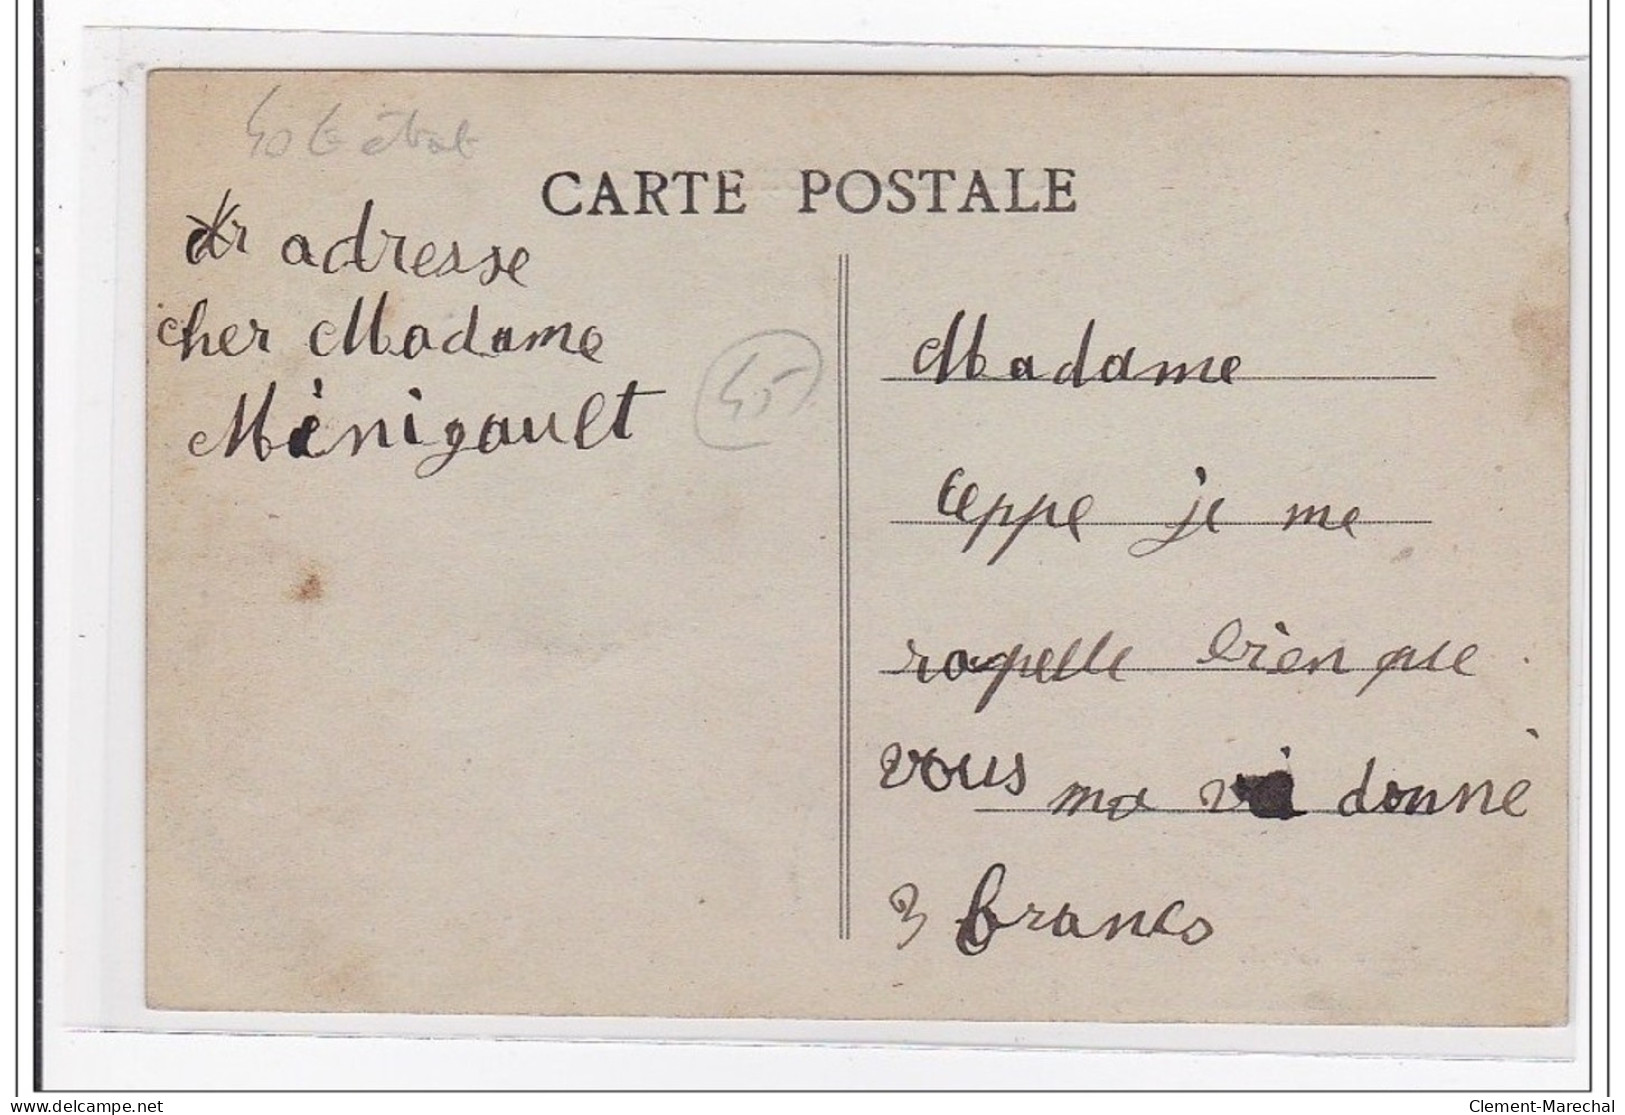 CARTE POSTALE
adresse
cher Madame
Ménigault
45
Madame
ceppe je me
rapelle bien que
vous ma donné
3 francs
delcampe.net
Clement-Marechal